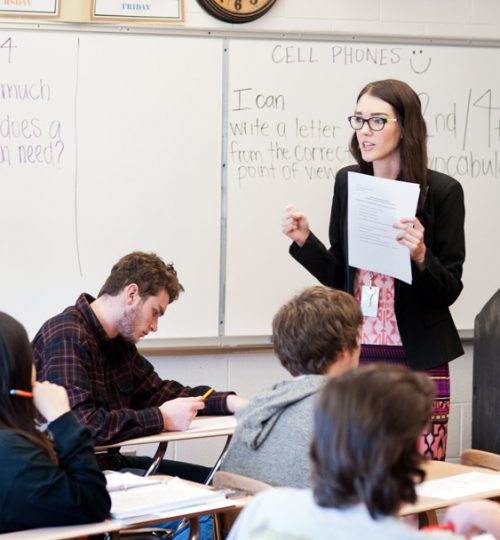 THURSDAY
FRIDAY
4
much
does a
need?
CELL PHONES
I can
write a letter
from the correct
point of view
2nd/4
vocabula